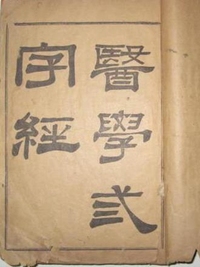 醫學弎
字經